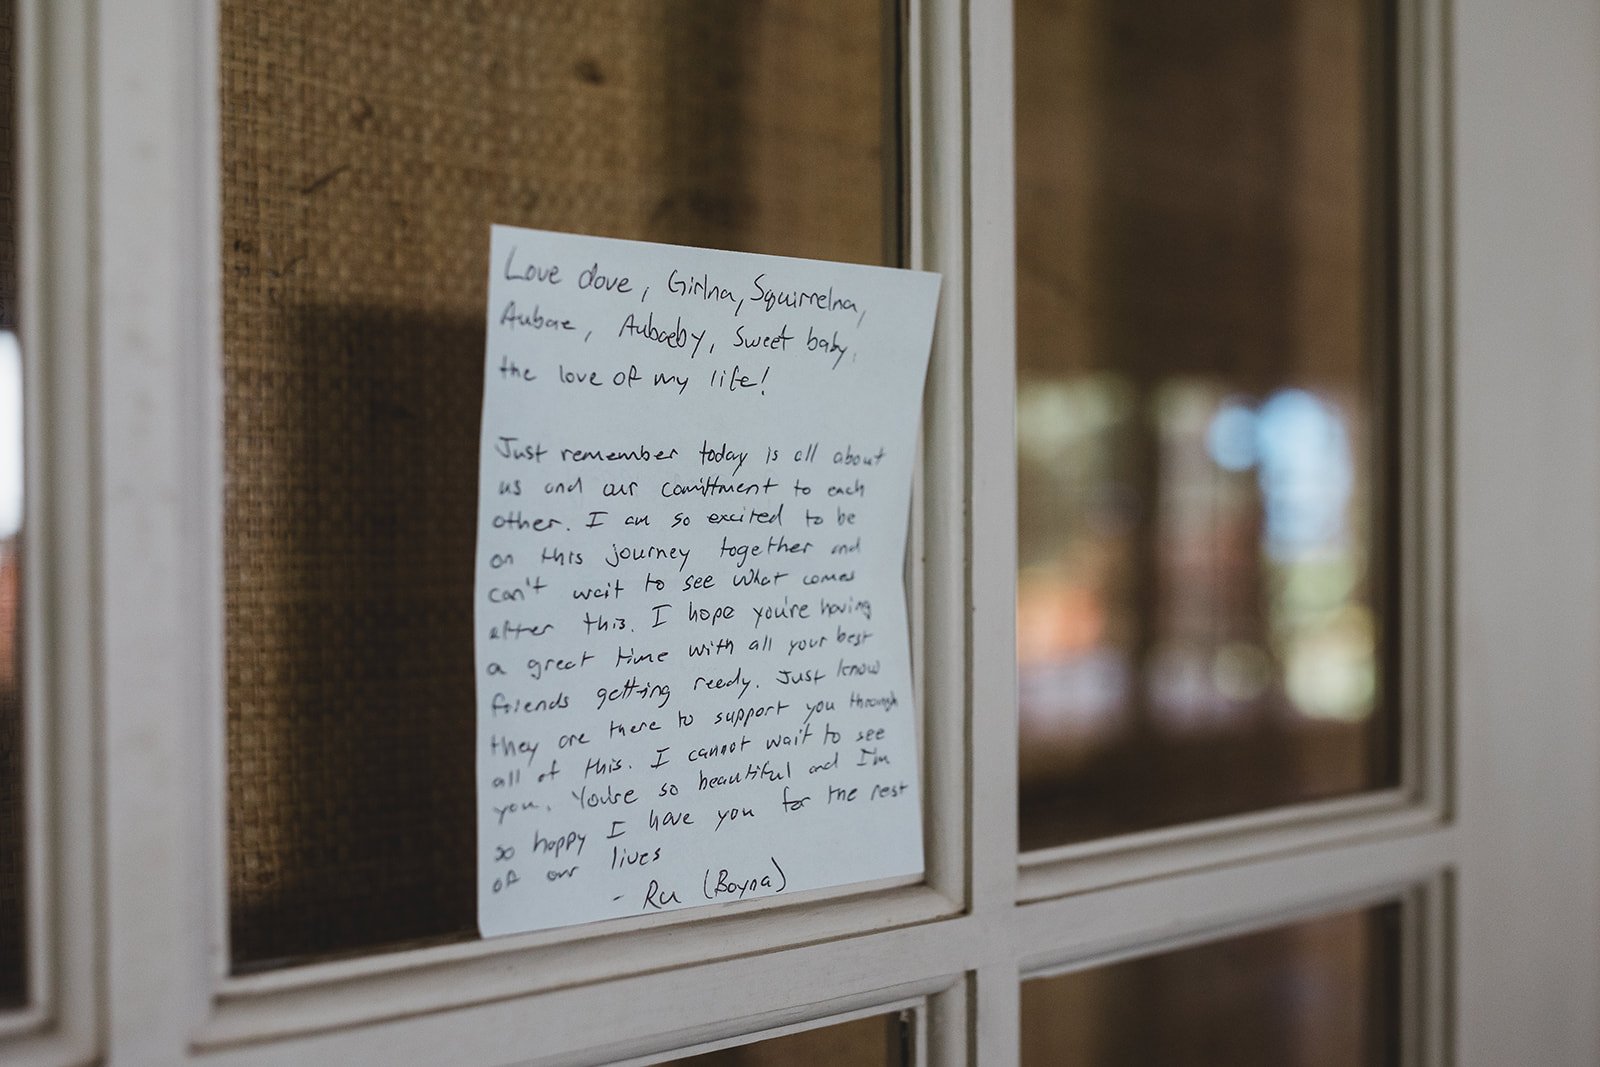 Love dove, Girlna, Squirrelna,
Aubae, Aubaeby, Sweet baby,
the love of my life!
Just remember today is all about
us and our comittment to each
other. I am so excited to be
on this journey together and
can't wait to see what comes
after this. I hope you're having
a great time with all your best
friends getting ready. Just know
they are there to support you through
all of this. I cannot wait to see
you. You're so beautiful and I'm
so happy I have you for the rest
of our lives
- Ru (Boyna)